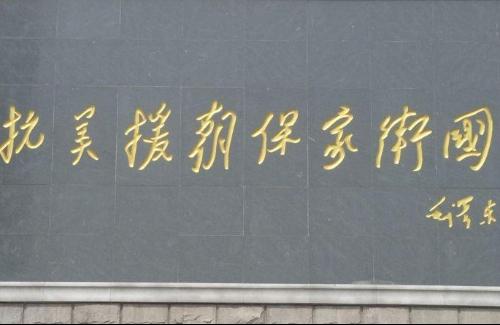 抗美援朝保家衛國
毛泽东